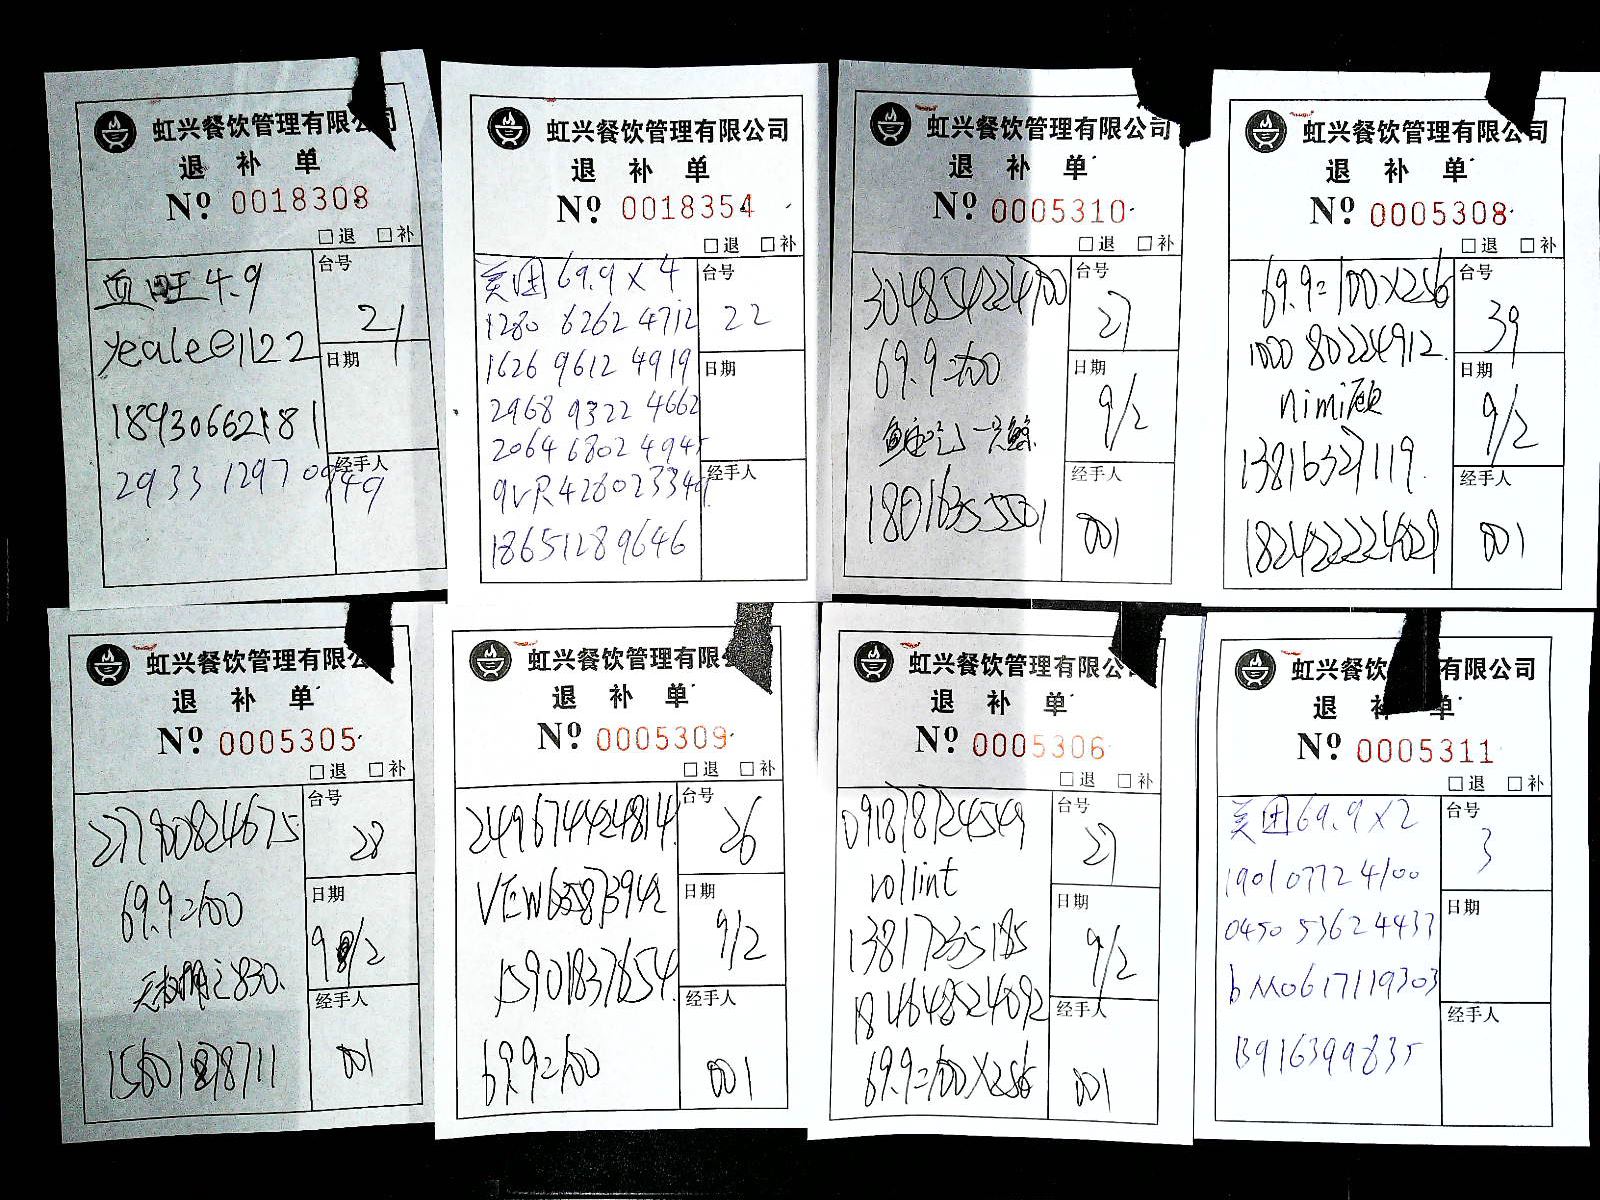 虹兴餐饮管理有限公司
退 补 单
Nº 0018308
□退 □补
血旺 4.9
yeale01122
18930662181
2933 1297 0949
台号
21
日期
经手人
虹兴餐饮管理有限公司
退 补 单
Nº 0018354
□退 □补
美团 69.9 X 4
1280 6262 4712
1626 9612 4919
2968 9322 4662
2064 6802 4945
18651289646
台号
22
日期
经手人
虹兴餐饮管理有限公司
退 补 单
Nº 0005310
□退 □补
304854224700
69.9=100
台号
27
日期
9/2
经手人
001
虹兴餐饮管理有限公司
退 补 单
Nº 0005308
□退 □补
69.9=100X256
1000 80224912
nimi顾
13816327119
182422224029
台号
39
日期
9/2
经手人
001
虹兴餐饮管理有限公司
退 补 单
Nº 0005305
□退 □补
277800824675
69.9=100
台号
28
日期
9/2
经手人
001
虹兴餐饮管理有限
退 补 单
Nº 0005309
□退 □补
249674424814
VEW635873942
15901837654
69.9=100
台号
26
日期
9/2
经手人
001
虹兴餐饮管理有限公司
退 补 单
Nº 0005306
□退 □补
091878724549
vollint
13817235185
184648524092
69.9=100X256
台号
27
日期
9/2
经手人
001
虹兴餐饮 有限公司
退 补 单
Nº 0005311
□退 □补
美团 69.9 X 2
190107724100
0450 5362 4433
bMo617119303
13916399835
台号
3
日期
经手人